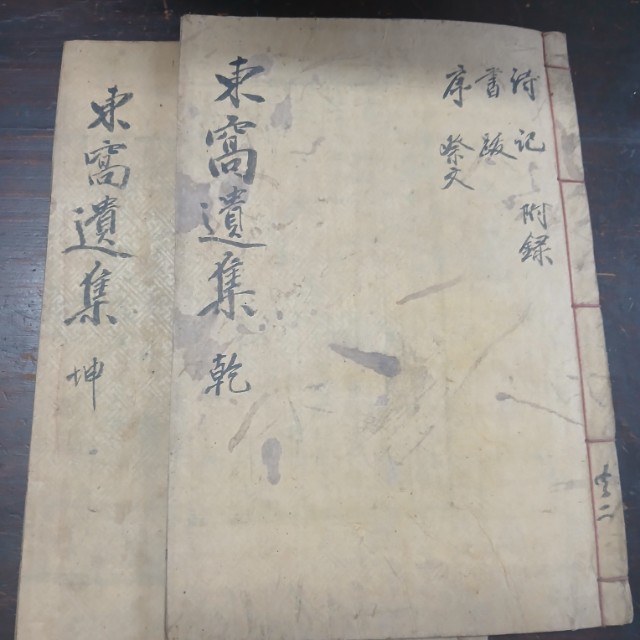 詩 記 附錄
書 跋
序 祭文
東窩遺集 乾
共二
東窩遺集 坤